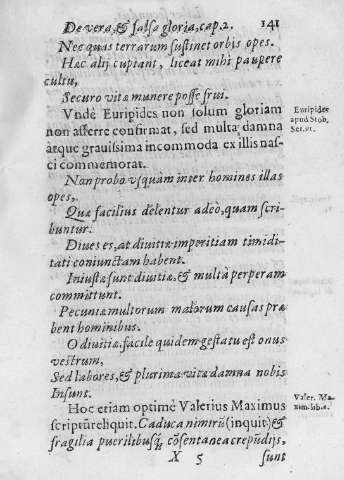 De vera, & falsa gloria, cap. 2. 141
Nec quas terrarum sustinet orbis opes.
Hac alij cupiant, liceat mihi paupere
cultu,
Securo vitæ munere posse frui.
Vndè Euripides non solum gloriam
non afferre confirmat, sed multa damna
atque grauissima incommoda ex illis nas-
ci commemorat.
Euripides
apud Stob.
Ser. 91.
Non probo vsquàm inter homines illas
opes,
Quæ facilius delentur adeò, quam scri-
buntur.
Diues es, at diuitiæ imperitiam timidi-
tati coniunctam habent.
Iniustæ sunt diuitiæ, & multa perperam
committunt.
Pecuniæ multorum malorum causas præ
bent hominibus.
O diuitiæ, facile quidem gestatu est onus
vestrum,
Sed labores, & plurima vitæ damna nobis
Insunt.
Hoc etiam optimè Valerius Maximus
scriptũ reliquit. Caduca nimirũ (inquit) &
fragilia puerilibusq́; cõsentanea crepũdijs,
Valer. Ma-
xim. lib. 6.
X 5 sunt